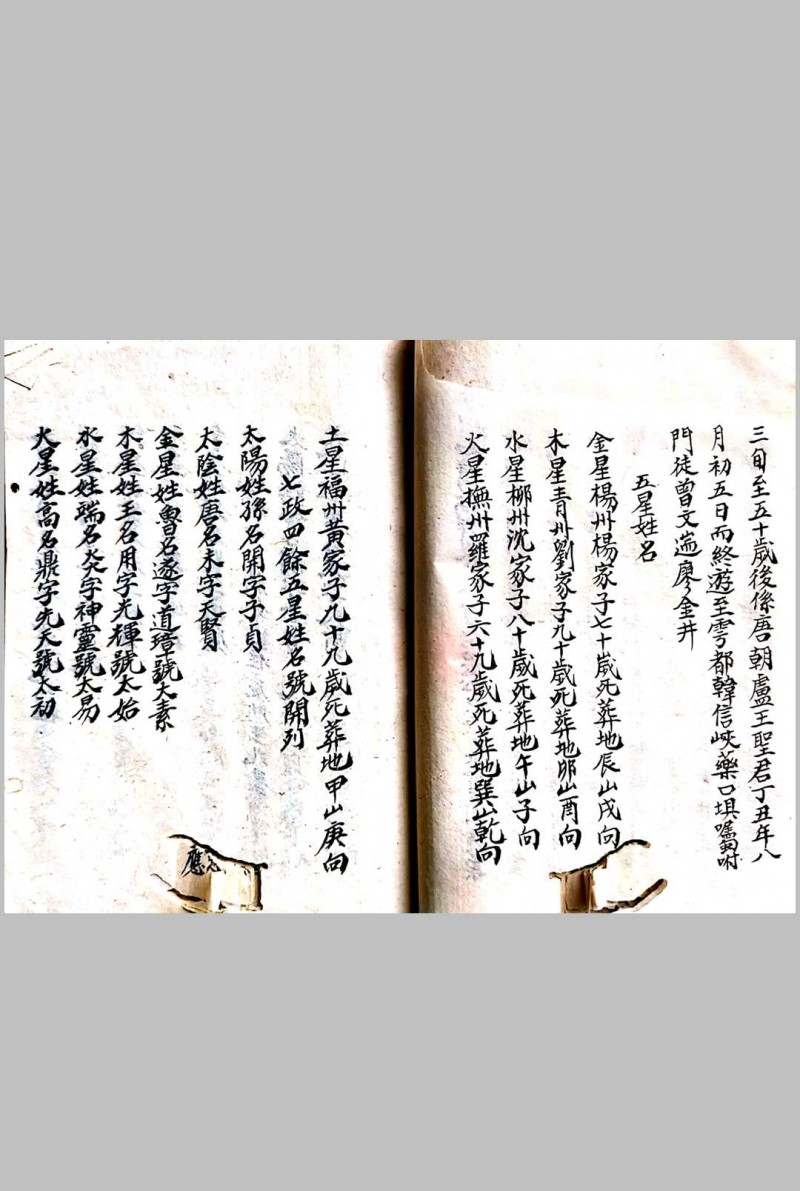 三旬至五十歲後係唐朝盧王聖君丁丑年八
月初五日而終遊至雩都韓信峽藥口垻嘱咐
門徒曾文遄廖金井
五星姓名
金星楊州楊家子七十歲死葬地辰山戌向
木星青州劉家子九十歲死葬地卯山酉向
水星郴州沈家子八十歲死葬地午山子向
火星撫州羅家子六十九歲死葬地巽山乾向
土星福州黃家子九十九歲死葬地甲山庚向
七政四餘五星姓名號開列
太陽姓孫名開字子貞
太陰姓唐名末字天賢
金星姓魯名遂字道璋號太素
木星姓王名用字光輝號太始
水星姓端名炎字神靈號太易
火星姓高名鼎字先天號太初
應